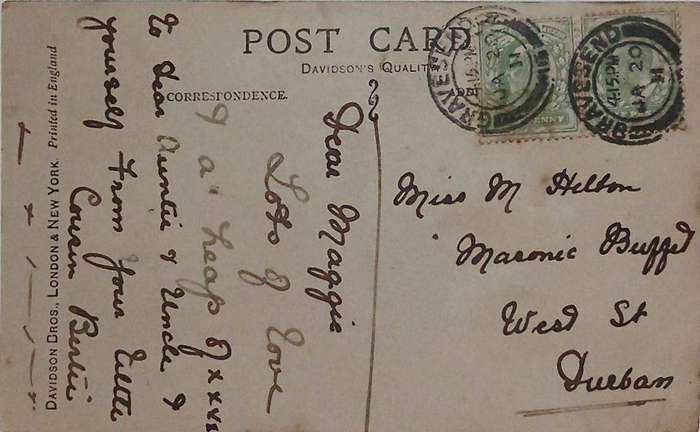 POST CARD
DAVIDSON'S QUALITY
CORRESPONDENCE.
Dear Maggie
Lots of love
& a heap of xxxs
to dear Auntie & Uncle &
yourself From your little
Cousin Bertie
Miss M Hilton
Masonic Buffet
West St
Durban
GRAVESEND
4.15PM
JA 20
11
GRAVESEND
4.15PM
JA 20
11
PENNY
DAVIDSON BROS., LONDON & NEW YORK. Printed in England